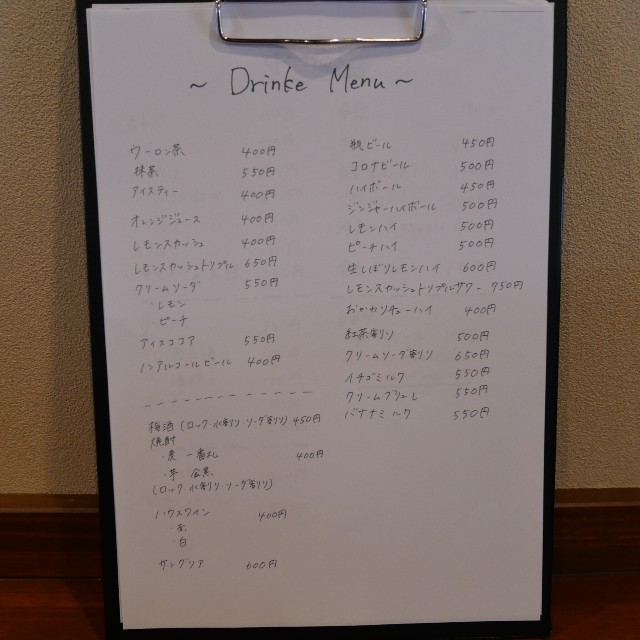 ~ Drinke Menu ~
ウーロン茶 400円
抹茶 550円
アイスティー 400円
オレンジジュース 400円
レモンスカッシュ 400円
レモンスカッシュトリプル 650円
クリームソーダ 550円
・レモン
・ピーチ
アイスココア 550円
ノンアルコールビール 400円
梅酒 (ロック・水割り・ソーダ割り) 450円
焼酎
・麦 一番札 400円
・芋 金黒
(ロック・水割り・ソーダ割り)
ハウスワイン 400円
・赤
・白
サングリア 600円
瓶ビール 450円
コロナビール 500円
ハイボール 450円
ジンジャーハイボール 500円
レモンハイ 500円
ピーチハイ 500円
生しぼりレモンハイ 600円
レモンスカッシュトリプルサワー 750円
おかわりチューハイ 400円
紅茶割り 500円
クリームソーダ割り 650円
イチゴミルク 550円
クリームブリュレ 550円
バナナミルク 550円